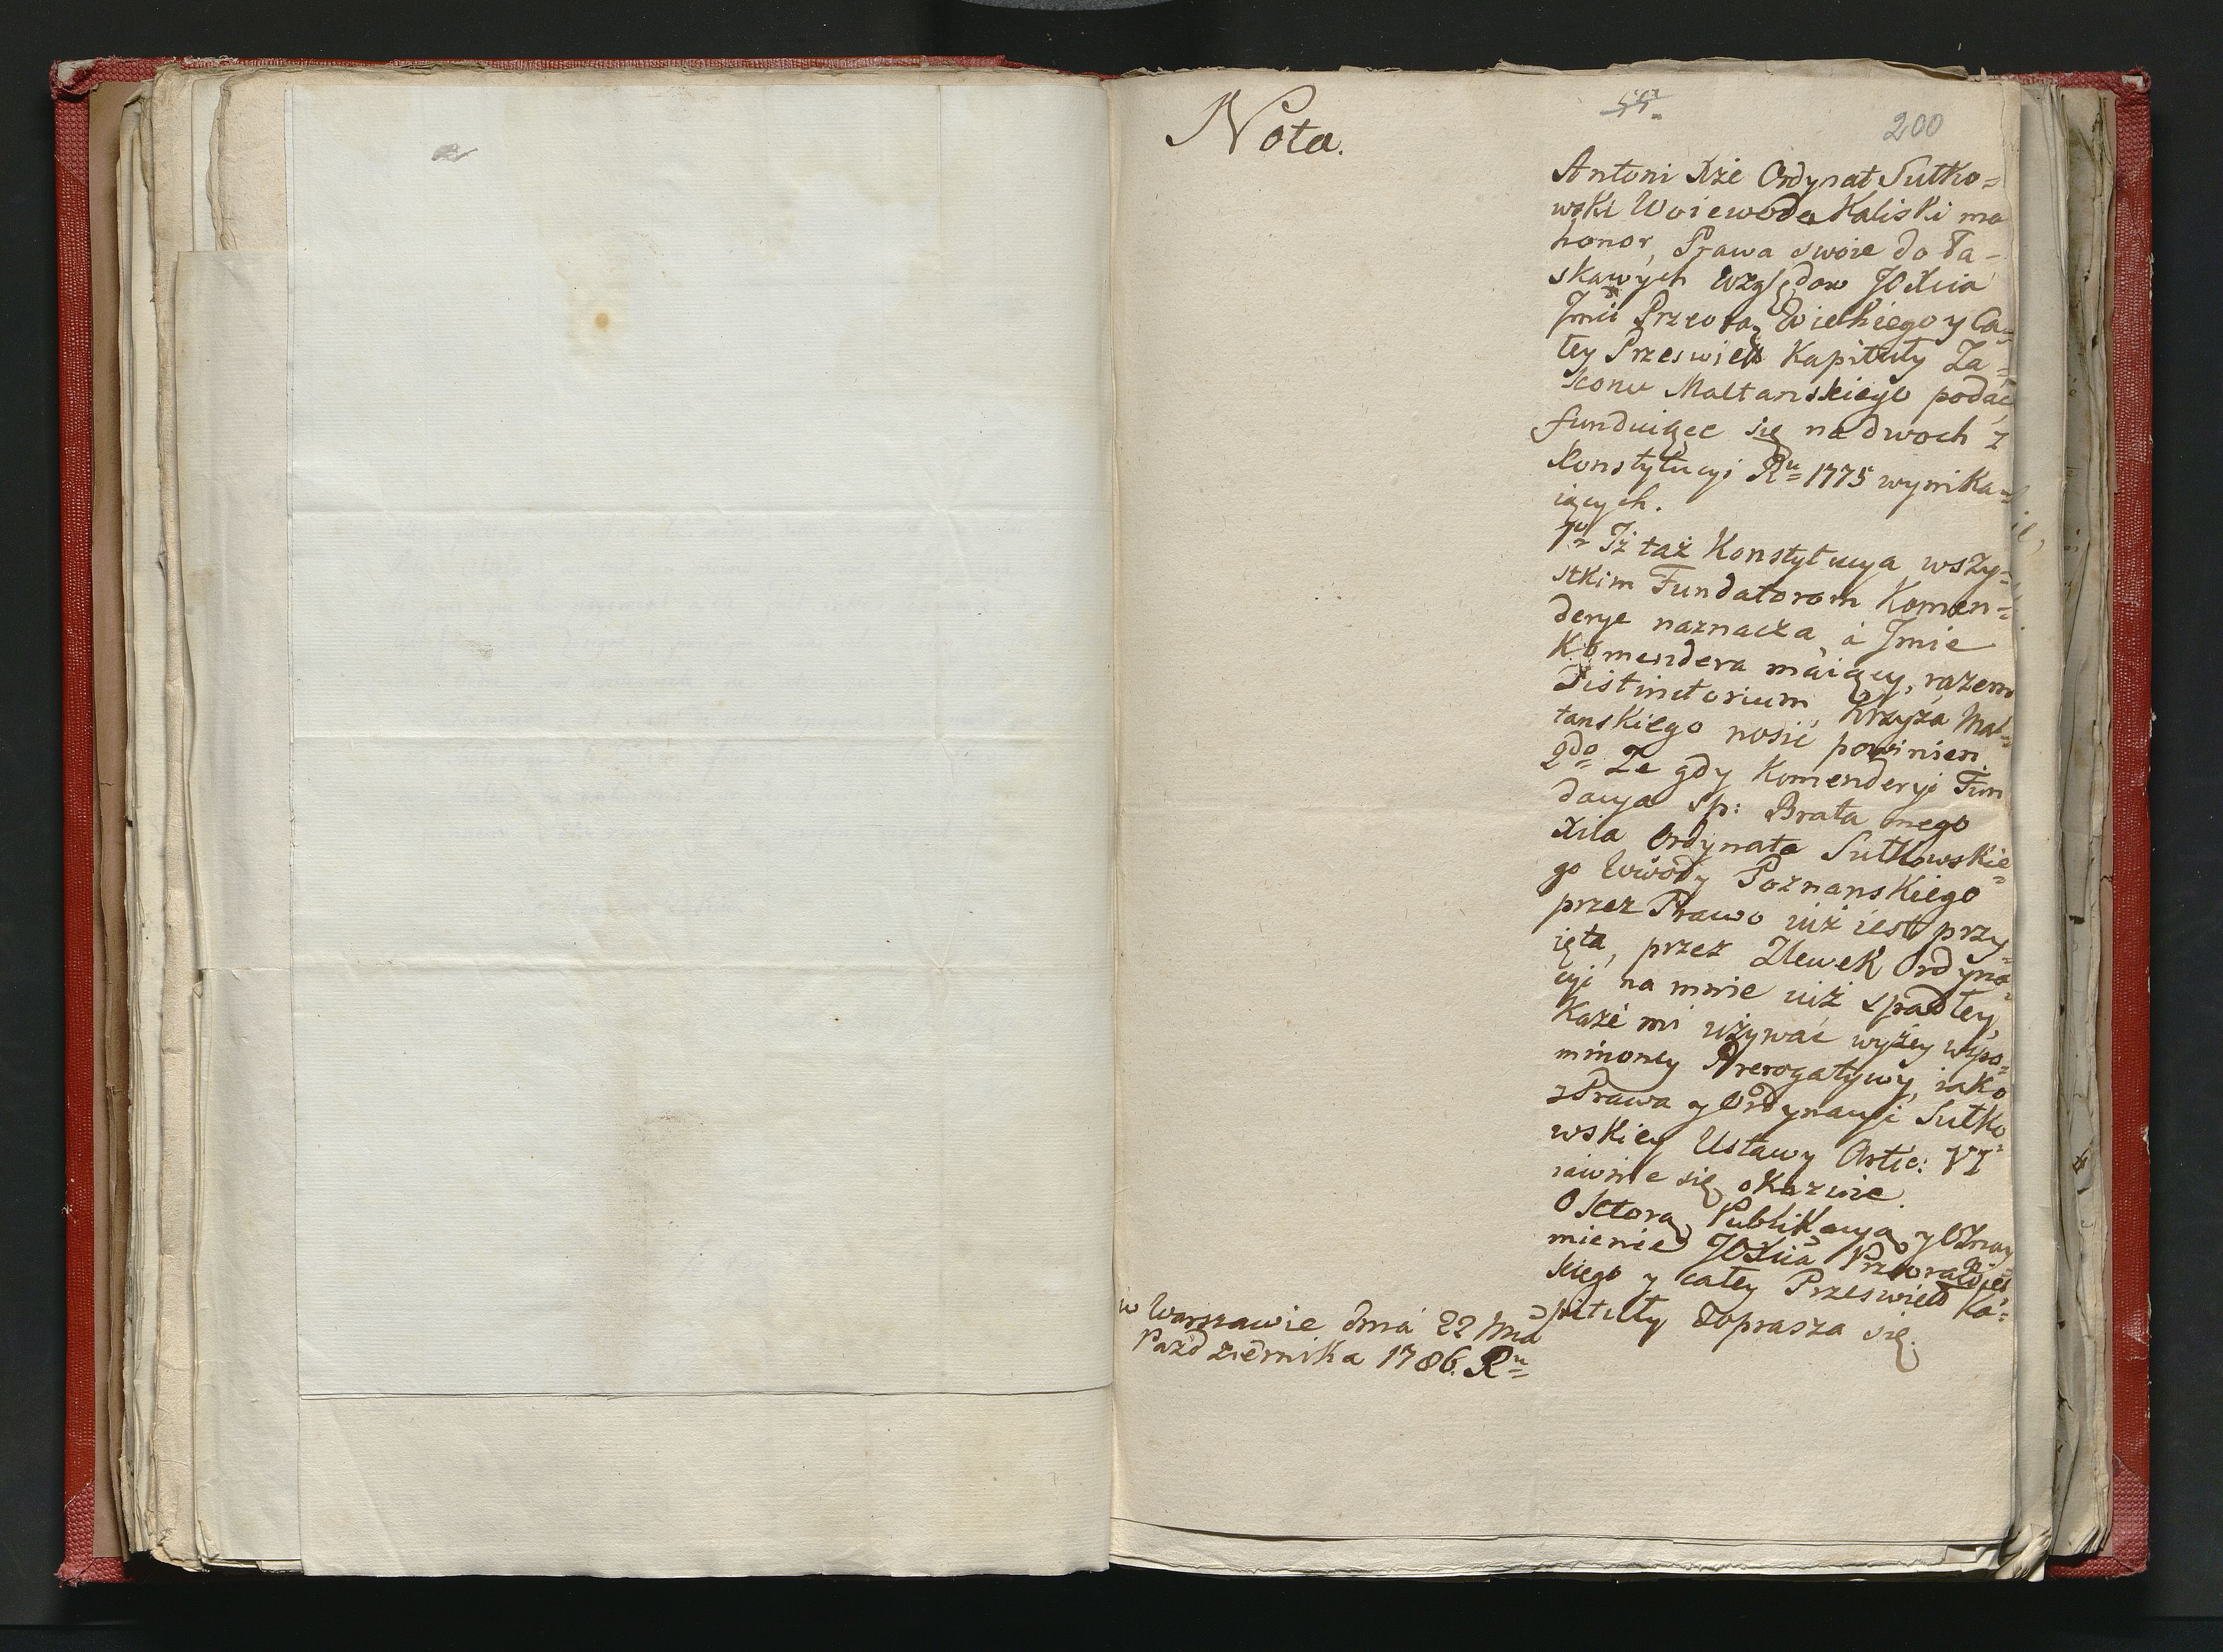 Nota.
200
Antoni Xże Ordynat Sułko=
wski Woiewoda Kaliski ma
honor, Prawa swoie do Ła-
skawych Względow JOXcia
Jmci Przeora Wielkiego y Ca=
łey Przeswiett Kapituły Za=
konu Maltanskiego podać
funduiąće się na dwoch z
Konstytucyi Ru= 1775 wynika=
iących.
1mo= Iż taż Konstytucya wszy=
stkim Fundatorom Komen=
derye naznacza, á Jmie
Komendera máiący, razem
Distinctorium, Krzyża Mal=
tanskiego nosić powinien.
2do= Ze gdy Komenderyi Fun
dacya Sp: Brata mego
Xcia Ordynata Sułkowskie=
go Wwody Poznanskiego
przez Prawo iuż iest przy=
ięta, przez Zlewek Ordyna=
cyi na mnie iuż spadłey,
Każe mi używać wyżey wspo=
mnioney Prerogatywy, iako
z Prawa y Ordynacyi Sułko
wskiey Ustawy Artic: VI
iawnie się okazuie.
O ktorą Publikacyą y Oznay
mienie JOXcia Przeora Wiel
kiego y całey Przeswiett Ka=
pituły doprasza się.
w Warszawie dnia 22 Mca
Pazdziernika 1786. Ru=